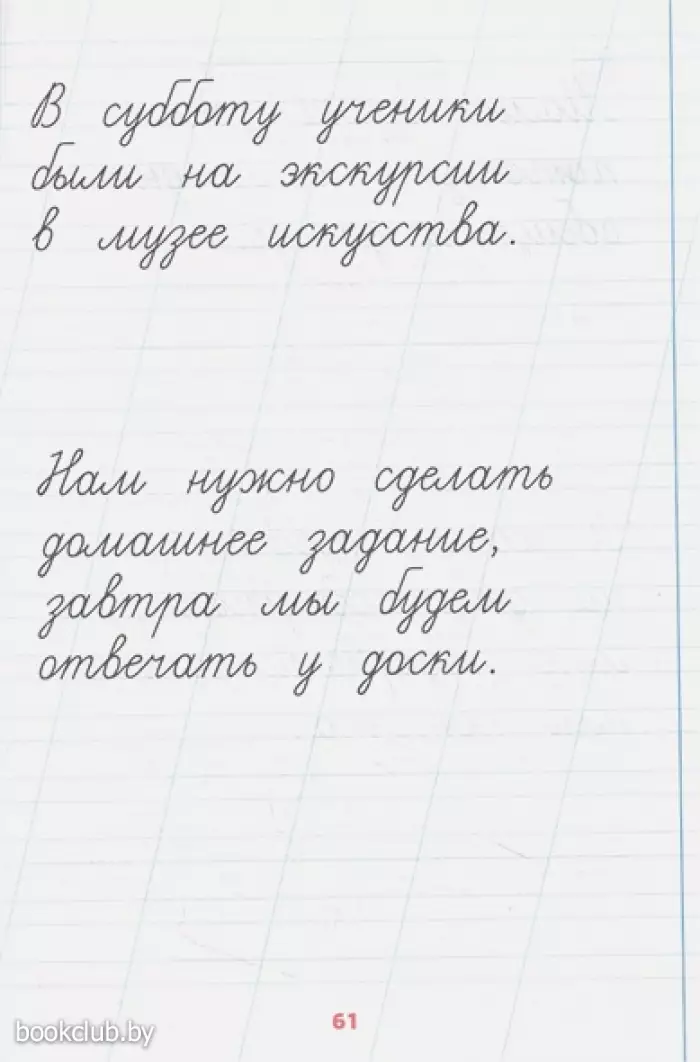 В субботу ученики
были на экскурсии
в музее искусства.
Нам нужно сделать
домашнее задание,
завтра мы будем
отвечать у доски.
61
bookclub.by